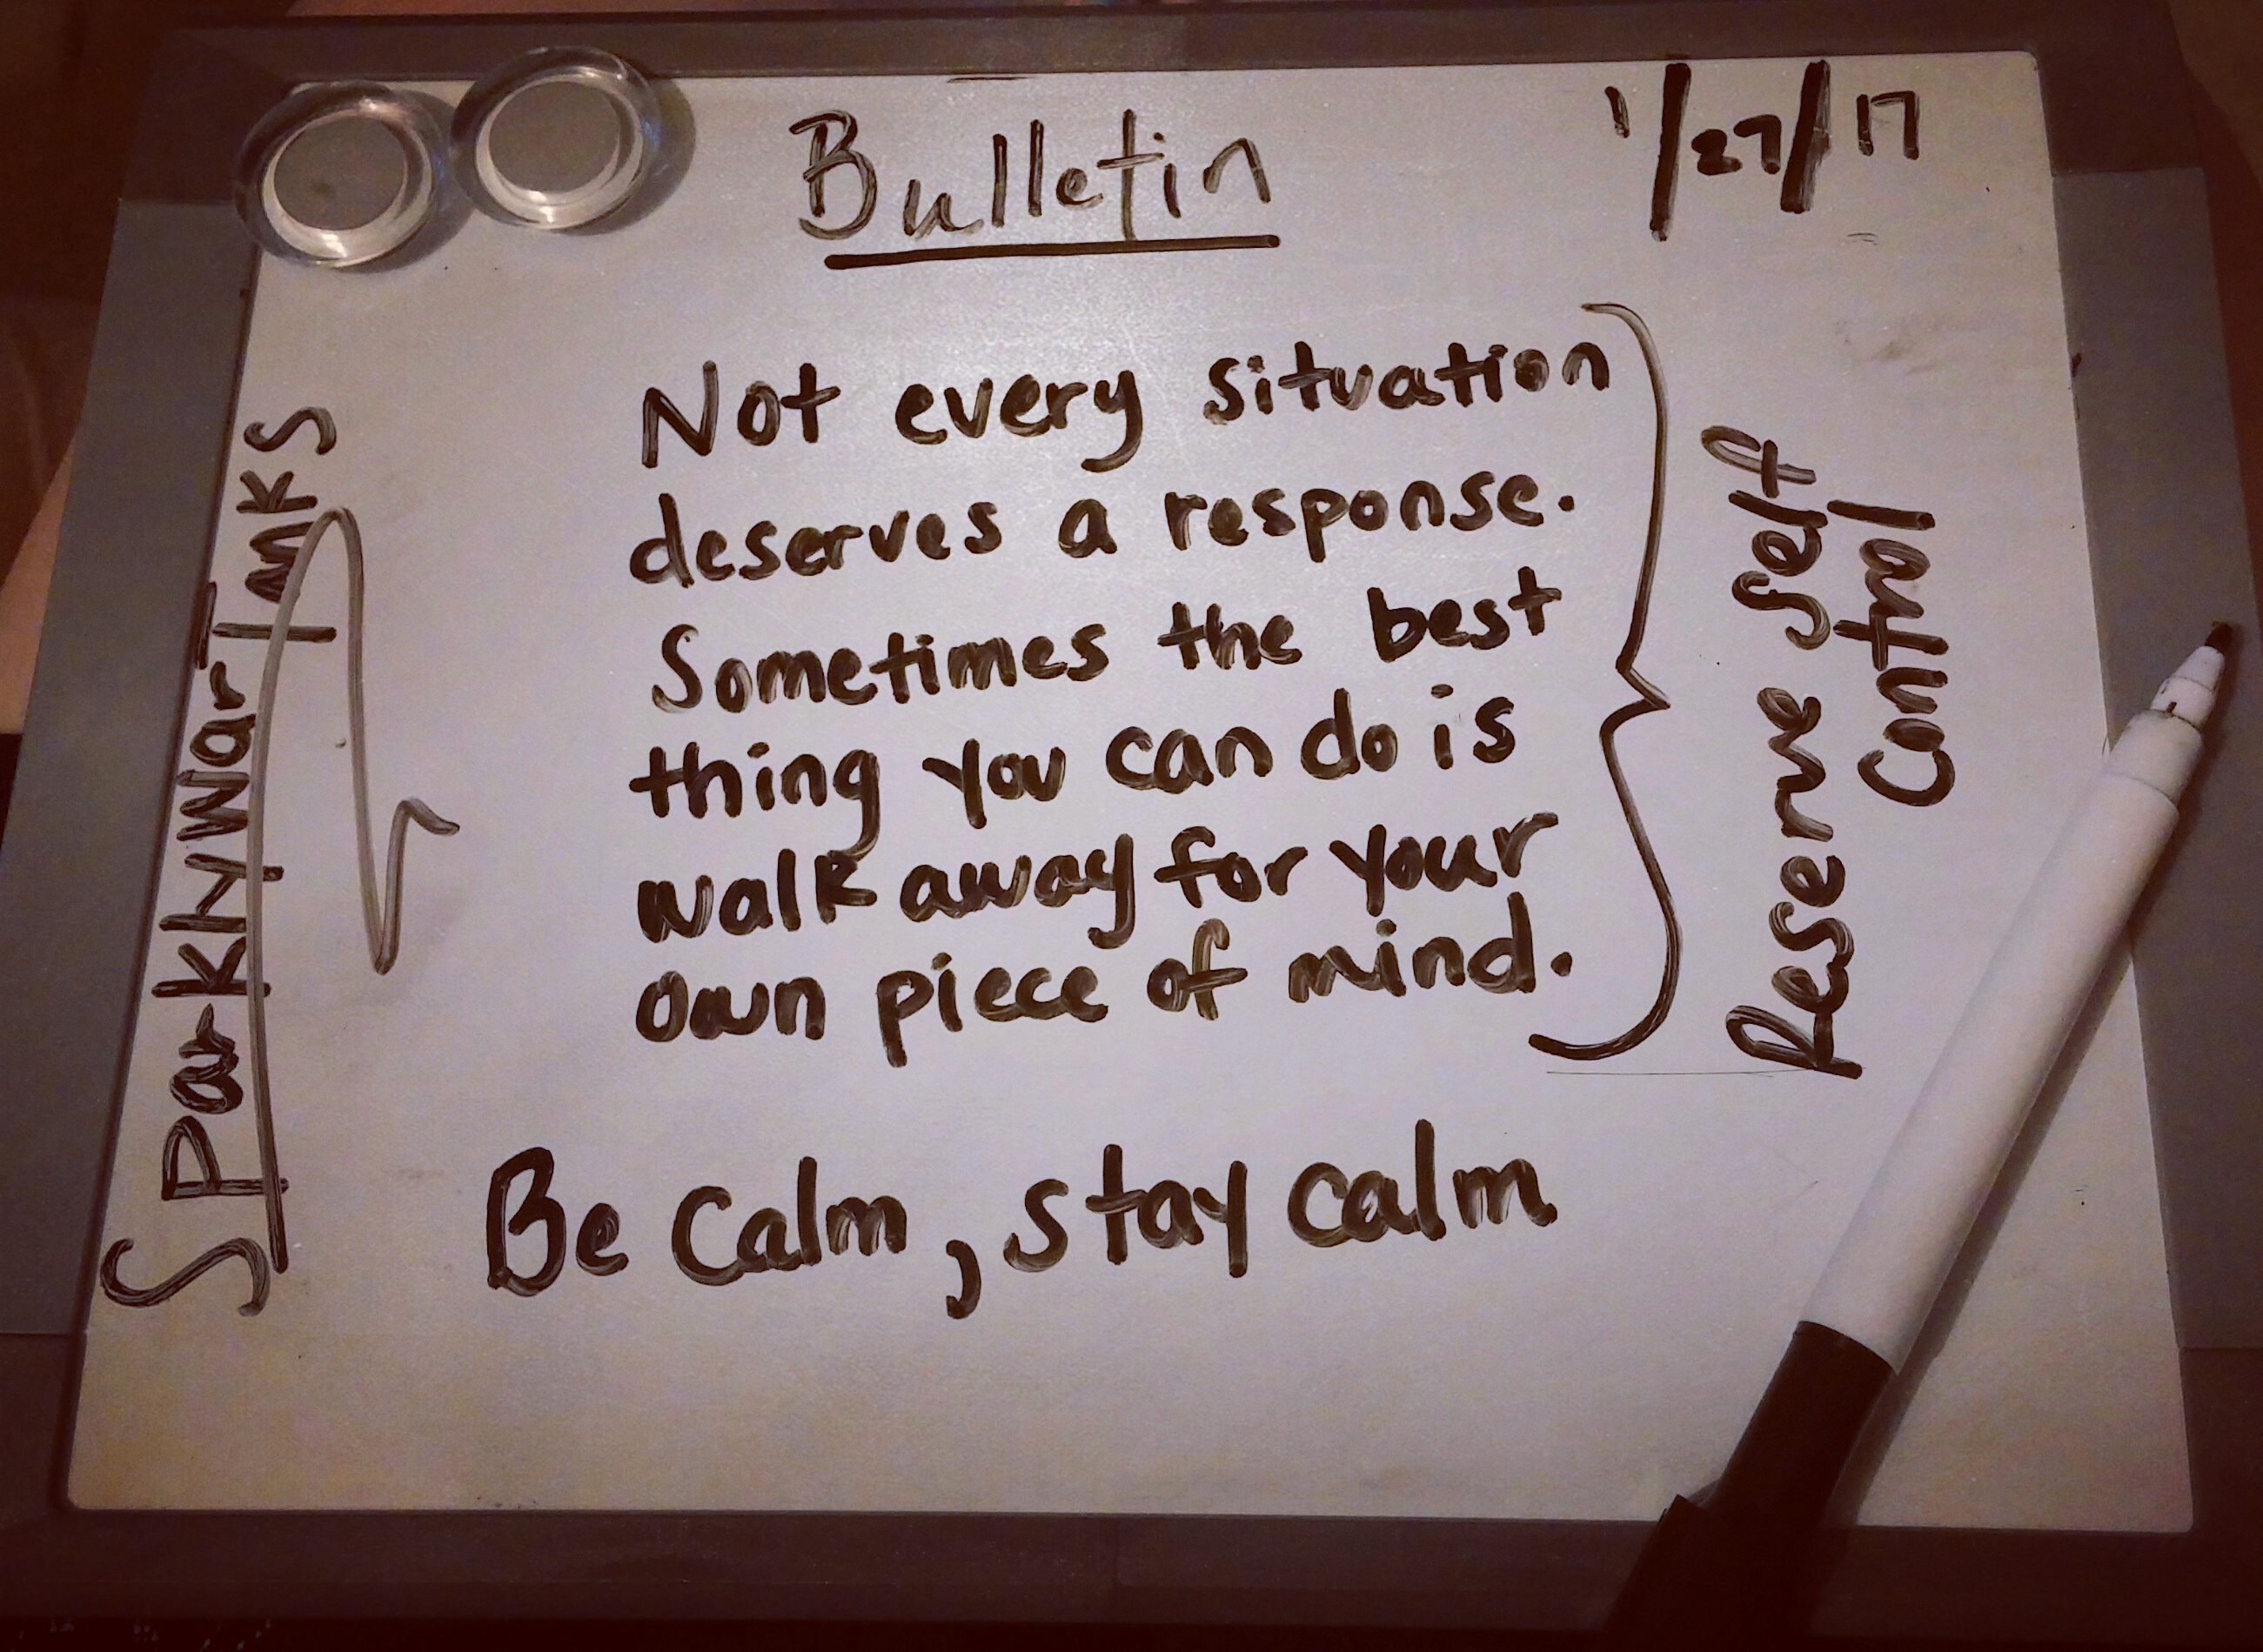 Bulletin
1/27/17
Not every situation
deserves a response.
Sometimes the best
thing you can do is
walk away for your
own piece of mind.
Reserve self
Control
Be Calm, stay calm